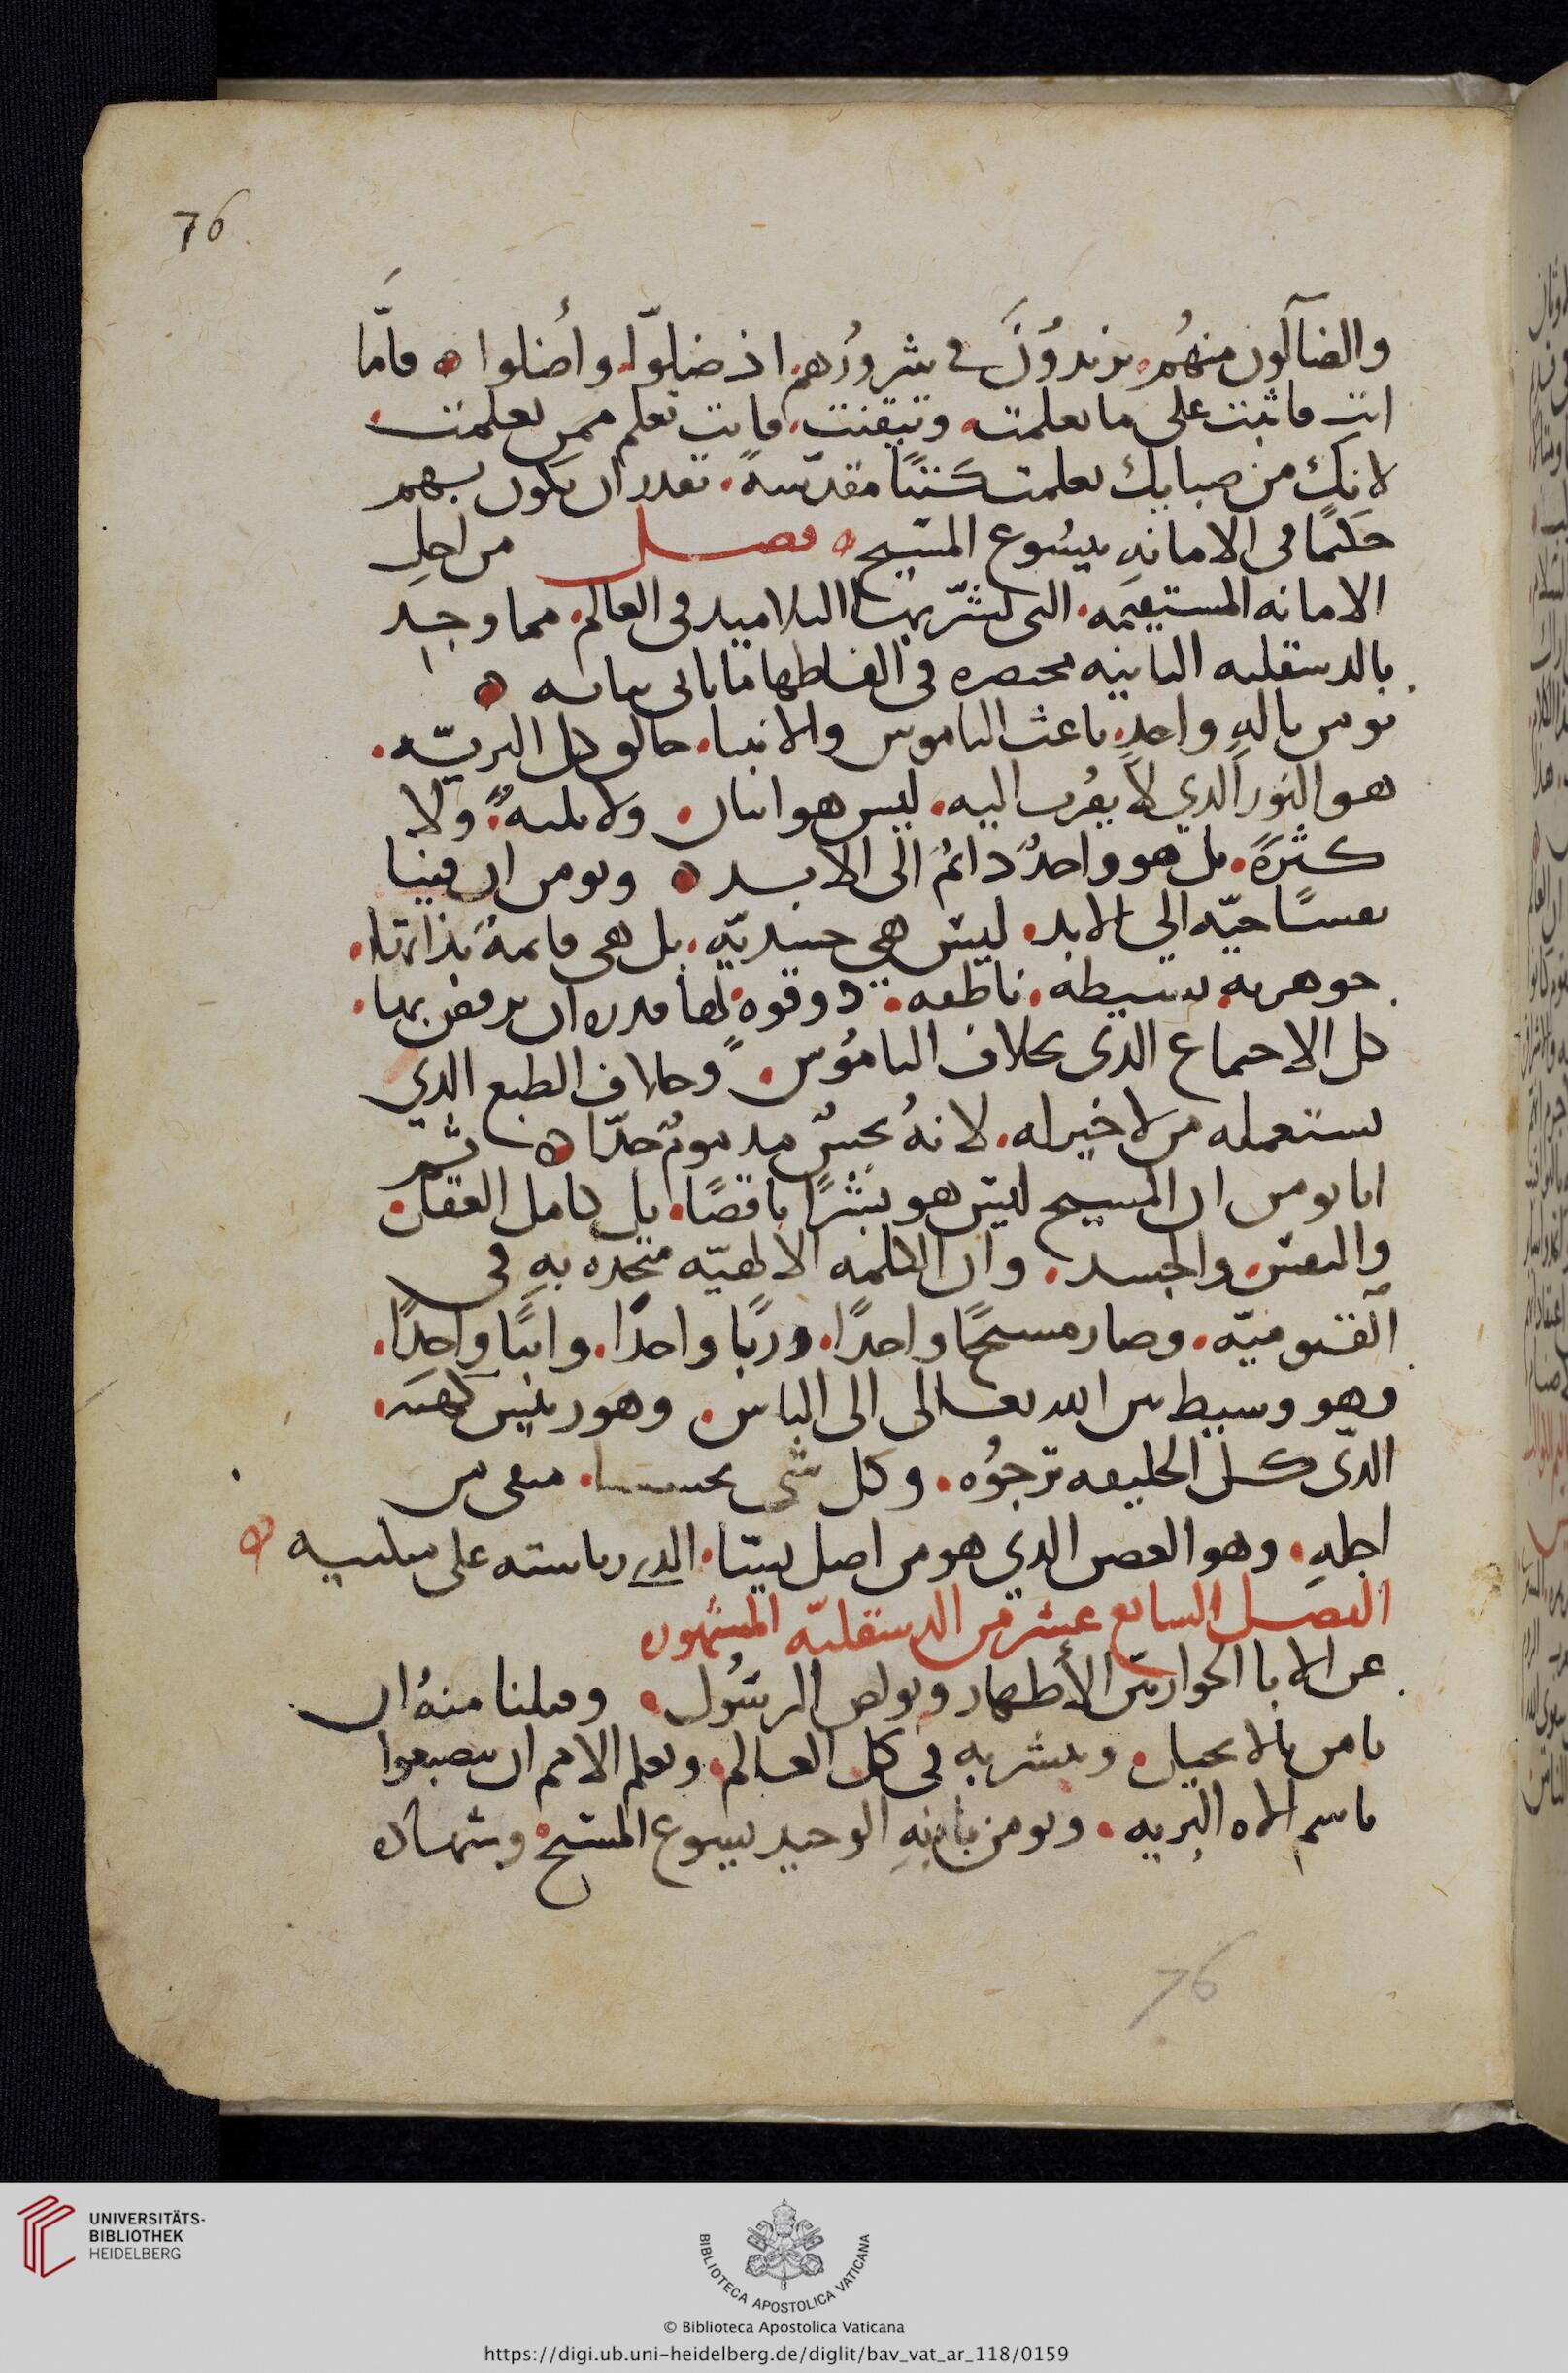 76
والضآلون منهُم. يزيدوُنَ في شرورُهم. اذ ضلوّا. واُضلوا ه فامَّا
انت فاثبت على ما تعلمت. وتيقنت. فانت تعلم ممن تعلمت.
لانكَ من صبايك تعلمت كَتبًا مقدّسهً. تقدر ان تكون بهم
حكمًا فى الامانهِ بيسُوع المسيح ه فصل من اجلِ
الامانه المستقيمَه. التى بشّر بها التلاميد فى العالم. مما وجِد
بالدسقليه الثانيه مختصره فى الفاظها ما ياتى بيانه ه
نومن بالهٍ واحدٍ. باعث الناموس والانبيا. خالق كل البريّه.
هو النور الدي لا يقرُب اليه. ليس هو اثنان. ولا ثلثهً. ولا
كثرهً. بل هو واحدٌ دائمٌ الى الابد ه ونومن ان فينا
نفسًا حيّه الي الابد. ليس هي جسديّه. بل هى قايمهٌ بذاتها.
جوهريه. بسيطه. ناطقه. ذو قوهٍ لها قدره ان ترفض بها.
كل الاجماع الذى بخلاف الناموُس. وخلاف الطبع الدي
تستعمله من لا خير له. لانهُ نجسٌ مدمومٌ جدًا ه ثم
انا نومن ان المسيح ليس هو بشرًا ناقصًا. بل كامل العقل
والنفس. والجسد. وان الكلمه الالهيّه متحده بهِ فى
القنوميّه. وصار مسيحًا واحدًا. وربًا واحدًا. وابنًا واحِدًا.
وهو وسيط بين الله تعالى الى الناس. وهو رييس كهنَه.
الدى كل الخليقه ترجوُه. وكل شى
اجلهِ. وهو الغصن الدي هو من اصل يسّا. الدي رياسته على منكبيه ه
الفصل السابع عشر من الدسقليّه المشهوره
عن الابا الحواريّين الأطهار وبولص الرسُول. وقبلنا منهُ ان
نامن بالانجيل. ونبشر به في كل العالم. ونعلم الامم ان ينصبغوا
باسم الاه البريه. ونومن بابنهِ الوحيد يسوع المسيح. وبشهاده
76
UNIVERSITÄTS-
BIBLIOTHEK
HEIDELBERG
BIBLIOTECA APOSTOLICA VATICANA
© Biblioteca Apostolica Vaticana
https://digi.ub.uni-heidelberg.de/diglit/bav_vat_ar_118/0159